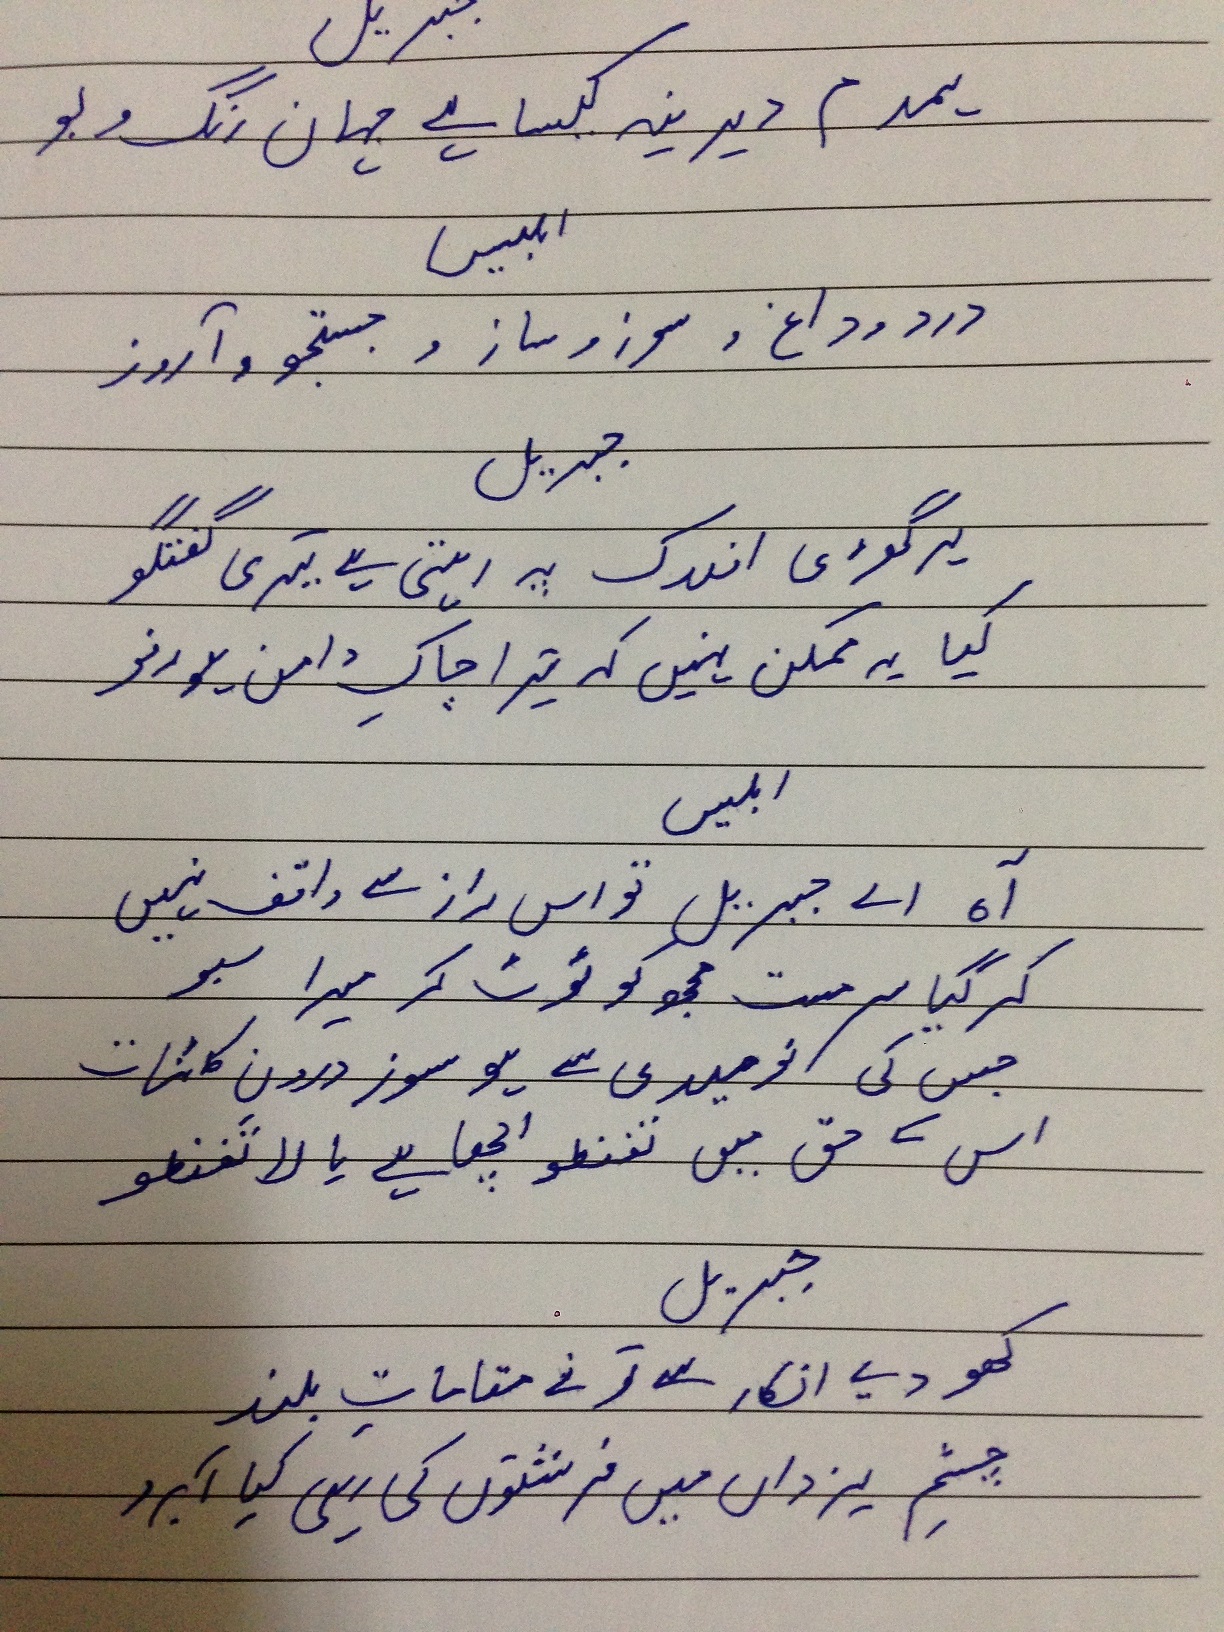 جبریل
ہمدم دیرینہ کیسا ہے جہان رنگ و بو
ابلیس
درد و داغ و سوز و ساز و جستجو و آروز
جبریل
ہر گھڑی افلاک پہ رہتی ہے تیری گفتگو
کیا یہ ممکن نہیں کہ تیرا چاکِ دامن ہو رفو
ابلیس
آہ اے جبریل تو اس راز سے واقف نہیں
کر گیا سرمست مجھ کو ٹوٹ کر میرا سبو
جس کی نومیدی سے ہو سوز درون کائنات
اس کے حق میں تقنطو اچھا ہے یا لا تَقنطو
جبریل
کھو دیے انکار سے تو نے مقاماتِ بلند
چشمِ یزداں میں فرشتوں کی رہی کیا آبرو